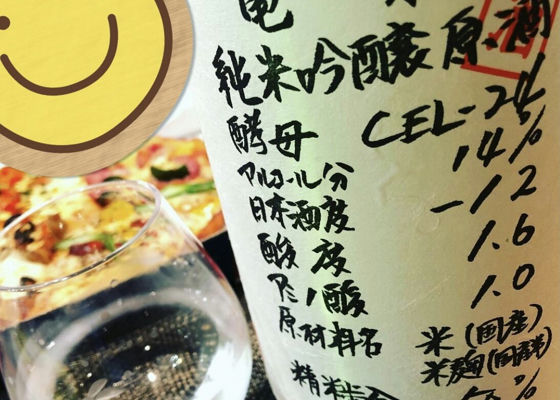 亀
純米吟醸 原酒
酵母 CEL-24
アルコール分 14%
日本酒度 -12
酸度 1.6
アミノ酸 1.0
原材料名 米(国産)
米麹(国産)
精米歩合